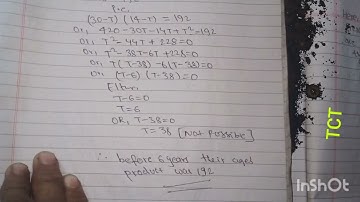 i.e.
(30-T) (14-T) = 192
or, 420 - 30T - 14T + T² = 192
or, T² - 44T + 228 = 0
or, T² - 38T - 6T + 228 = 0
or, T(T-38) - 6(T-38) = 0
or, (T-6) (T-38) = 0
T-6=0
T=6
OR, T-38=0
T=38 [Not Possible]
∴ before 6 years their ages
product was 192
TCT
InShOt